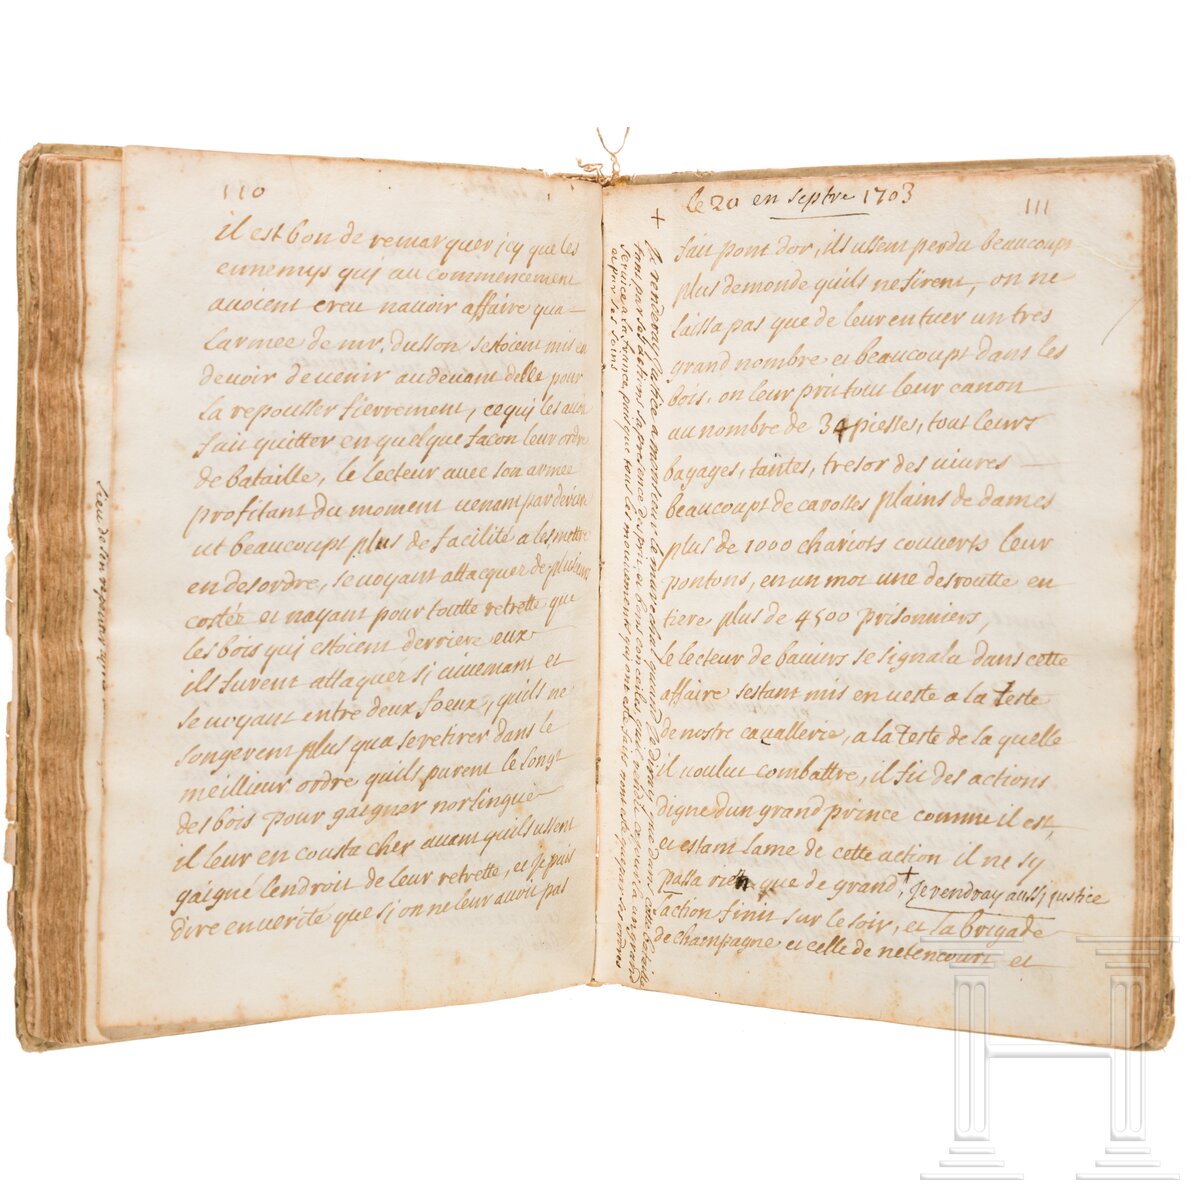 110
il est bon de remarquer jcy que les
ennemys quj au commencement
avoient creu navoir affaire qua
larmee de mr. dusson sestoient mis en
devoir devenir audevant delle pour
la repousser fierrement, cequj les avoit
fait quitter en quelque facon leur ordre
de bataille, le lecteur avec son armée
profitant du moment venant par deriere
ut beaucoupt plus de facilité a les mettre
en desordre, se voyant attacquez de plusieurs
costéz et nayant pour toutte retrette que
les bois quj estoient derriere eux
ils furent attaquez sj vivemant et
se voyant entre deux foeux, quils ne
songerent plus qua se retirer dans le
meilleur ordre quils purent le longt
des bois pour gaigner norlingue
il leur en cousta cher avant quils ussent
gaigné lendroit de leur retrette, et je puis
dire en verité que sj on ne leur avoit pas
le 20 en septre 1703
111
fait pont dor, ils ussent perdu beaucoupt
plus demonde quils ne firent, on ne
laissa pas que de leur en tuer un tres
grand nombre et beaucoupt dans les
bois, on leur prit tout leur canon
au nombre de 34 piesses, tout leurs
bagages, tantes, tresor des vivres
beaucoupt de carosses plains de dames
plus de 1000 chariots couverts leur
pontons, en un mot une desroutte en
tiere plus de 4500 prisonniers,
le lecteur de baviers se signala dans cette
affaire sestant mis en veste a la teste
de nostre cavallerie, a la teste de la quelle
il voulut combattre, il fit des actions
digne dun grand prince comme il est,
et estant lame de cette action il ne sy
passa rien que de grand, + je rendray aussj justice
laction finit sur le soir, et la brigade
de champagne et celle de netencourt et
+ je renderay justice a monsieur le mareschal quand je diray que dans cette bataille
tans par ses actions sa presence desprit et bons conceiles, quil rendit ce jour la un grand
service a la france, puisque tout les mouvements quj ont esté faits nont esté que par ses ordres
et par ses soins